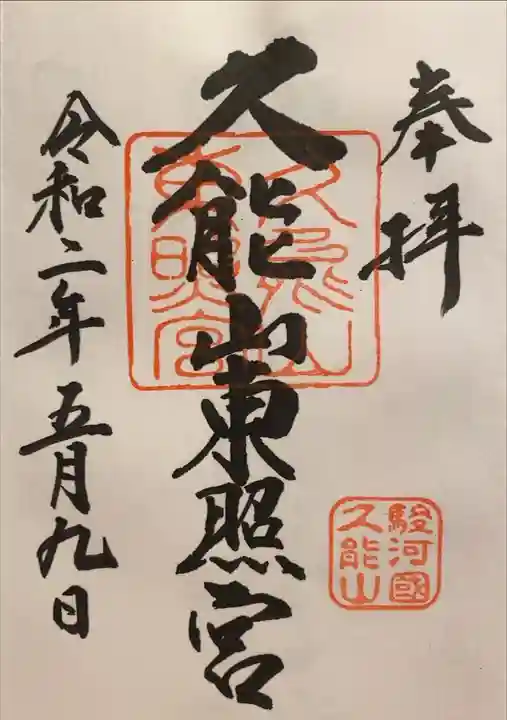 奉拝
駿河國
久能山
久能山東照宮
久能山
東照宮
令和二年五月九日